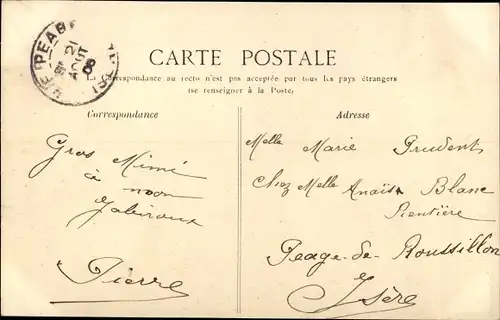 PEA
21
AOUT
08
CARTE POSTALE
La Correspondance au recto n'est pas acceptée par tous les pays étrangers
(se renseigner à la Poste)
Correspondance
Gros Mimi
à
Pierre
Adresse
Melle Marie Prudent
Chez Melle Anaïs Blanc
Rentière
Peage-de-Roussillon
Isère